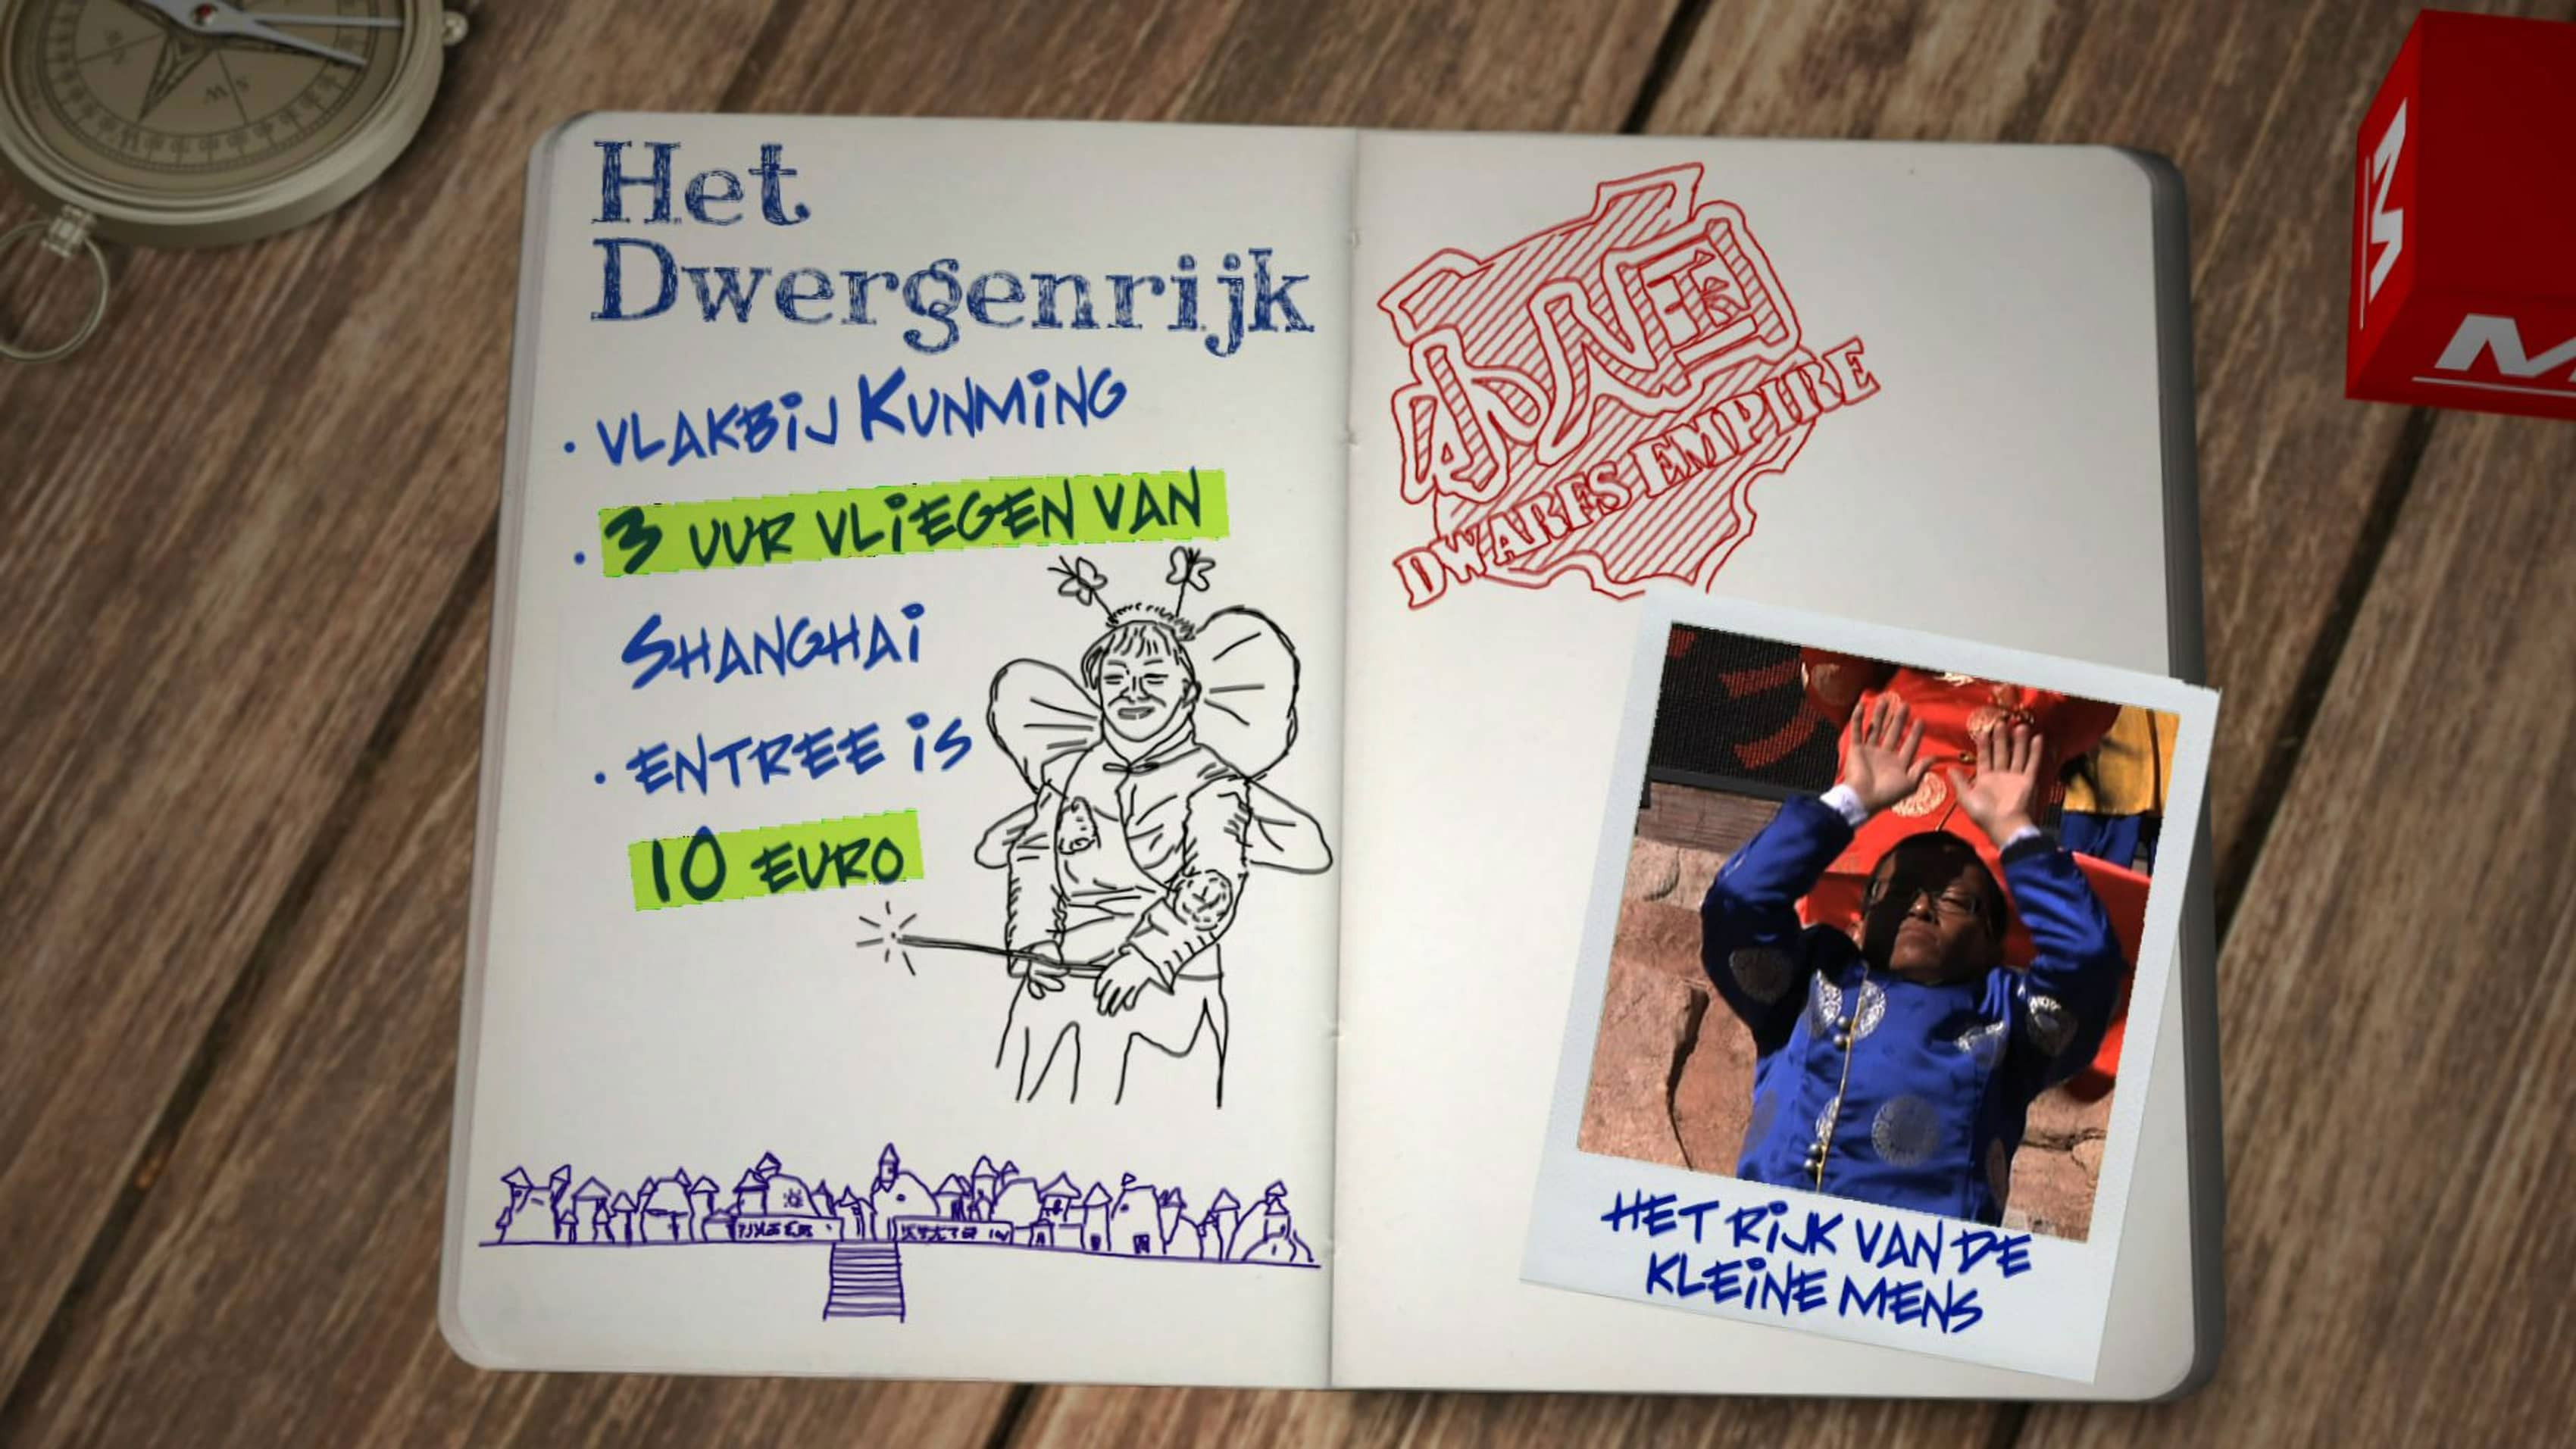 Het
Dwergenrijk
• VLAKBIJ KUNMING
• 3 UUR VLIEGEN VAN
SHANGHAI
• ENTREE IS
10 EURO
DWARFS EMPIRE
HET RIJK VAN DE
KLEINE MENS